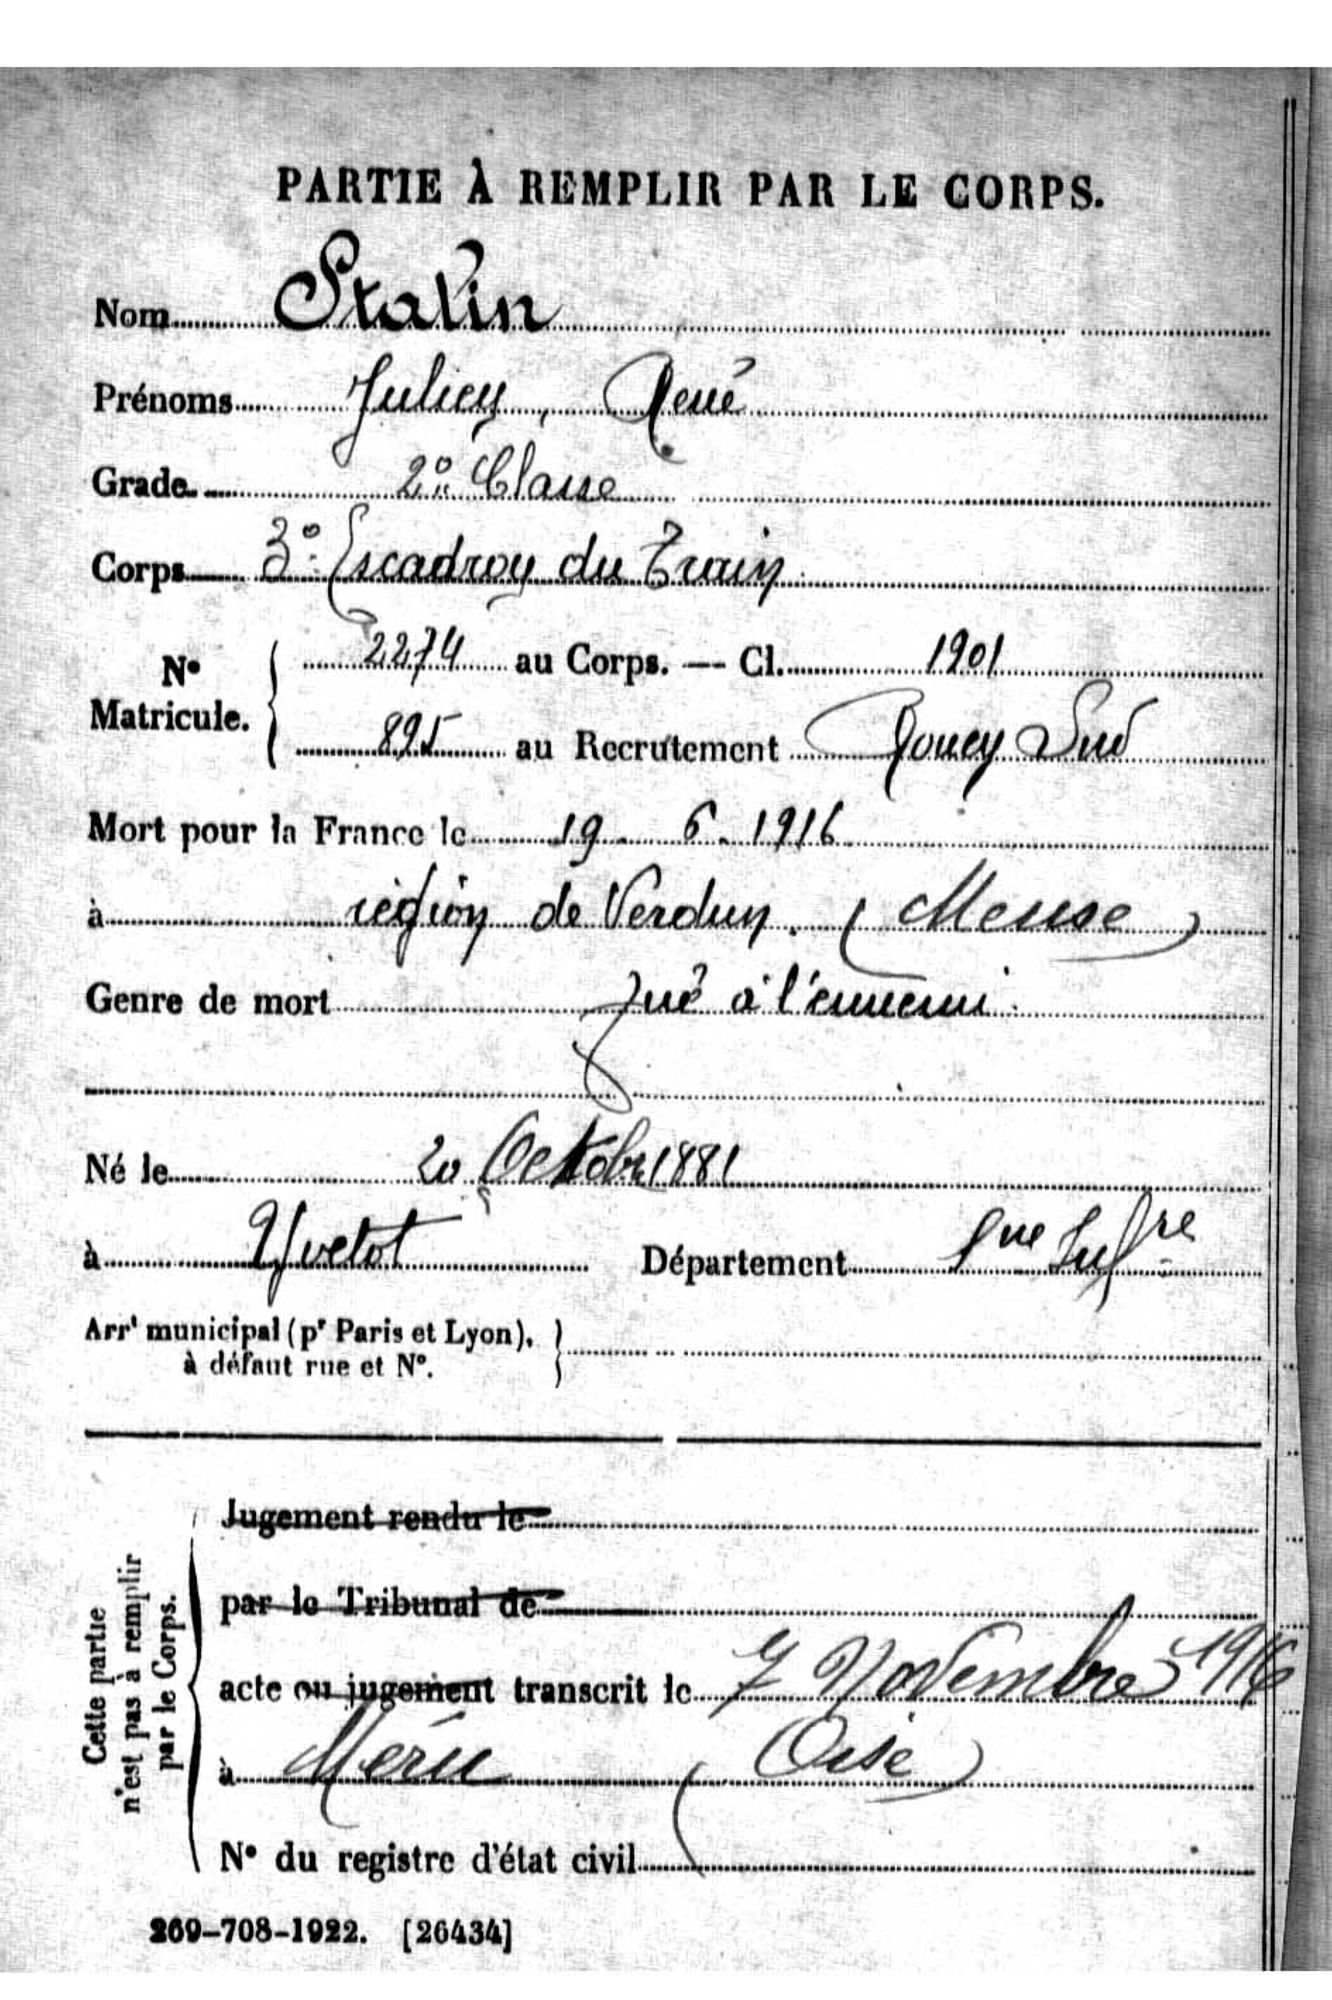 PARTIE À REMPLIR PAR LE CORPS.
Nom Stalin
Prénoms Julien, René
Grade 2e Classe
Corps 3e Escadron du Train
N° Matricule. 2274 au Corps. — Cl. 1901
895 au Recrutement Rouen Sud
Mort pour la France le 19 . 6 . 1916
à région de Verdun. (Meuse)
Genre de mort Tué à l'ennemi.
Né le 20 Octobre 1881
à Yvetot Département Sne Infre
Arrt municipal (pr Paris et Lyon),
à défaut rue et N°.
Jugement rendu le
par le Tribunal de
acte ou jugement transcrit le 7 Novembre 1916
à Méru (Oise)
N° du registre d'état civil
Cette partie
n'est pas à remplir
par le Corps.
269-708-1922. [26434]